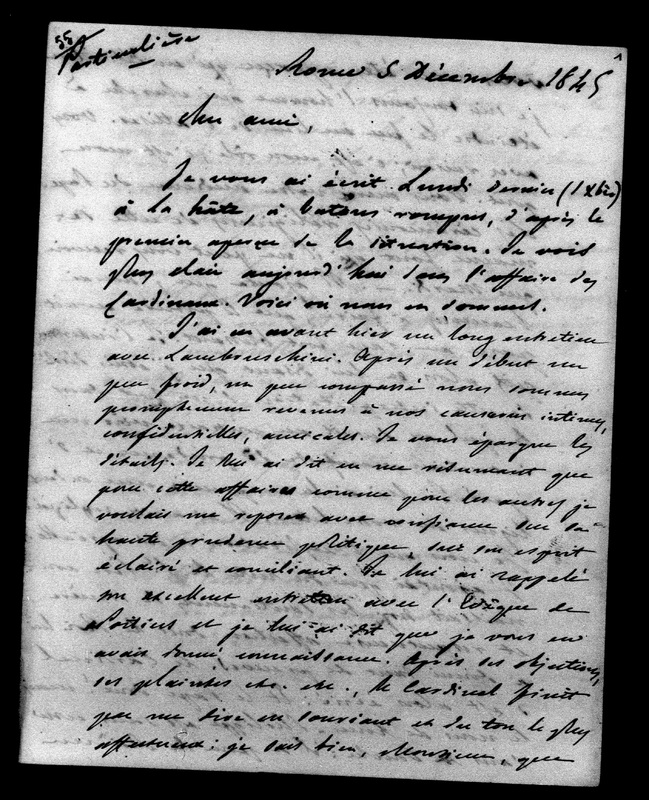 55
Particulière
Rome 5 Décembre 1845
Cher ami,
Je vous ai écrit Lundi dernier (1 Xbre)
à la hâte, à batons rompus, d'après le
premier aperçu de la situation. Je vois
plus clair aujourd'hui dans l'affaire des
Cardinaux. Voici où nous en sommes.
J'ai eu avant hier un long entretien
avec Lambruschini. Après un début un
peu froid, un peu compassé nous sommes
promptement revenus à nos causeries intimes,
confidentielles, amicales. Je vous épargne les
détails. Je lui ai dit en me résumant que
pour cette affaire comme pour les autres je
voulais me reposer avec confiance sur sa
haute prudence politique, sur son esprit
éclairé et conciliant. Je lui ai rappelé
son excellent entretien avec l'Evêque de
Poitiers et je lui ai dit que je vous en
avais donné connaissance. Après ses objections,
ses plaintes etc. etc., le Cardinal finit
par me dire en souriant et du ton le plus
affectueux : je sais bien, Monsieur, que